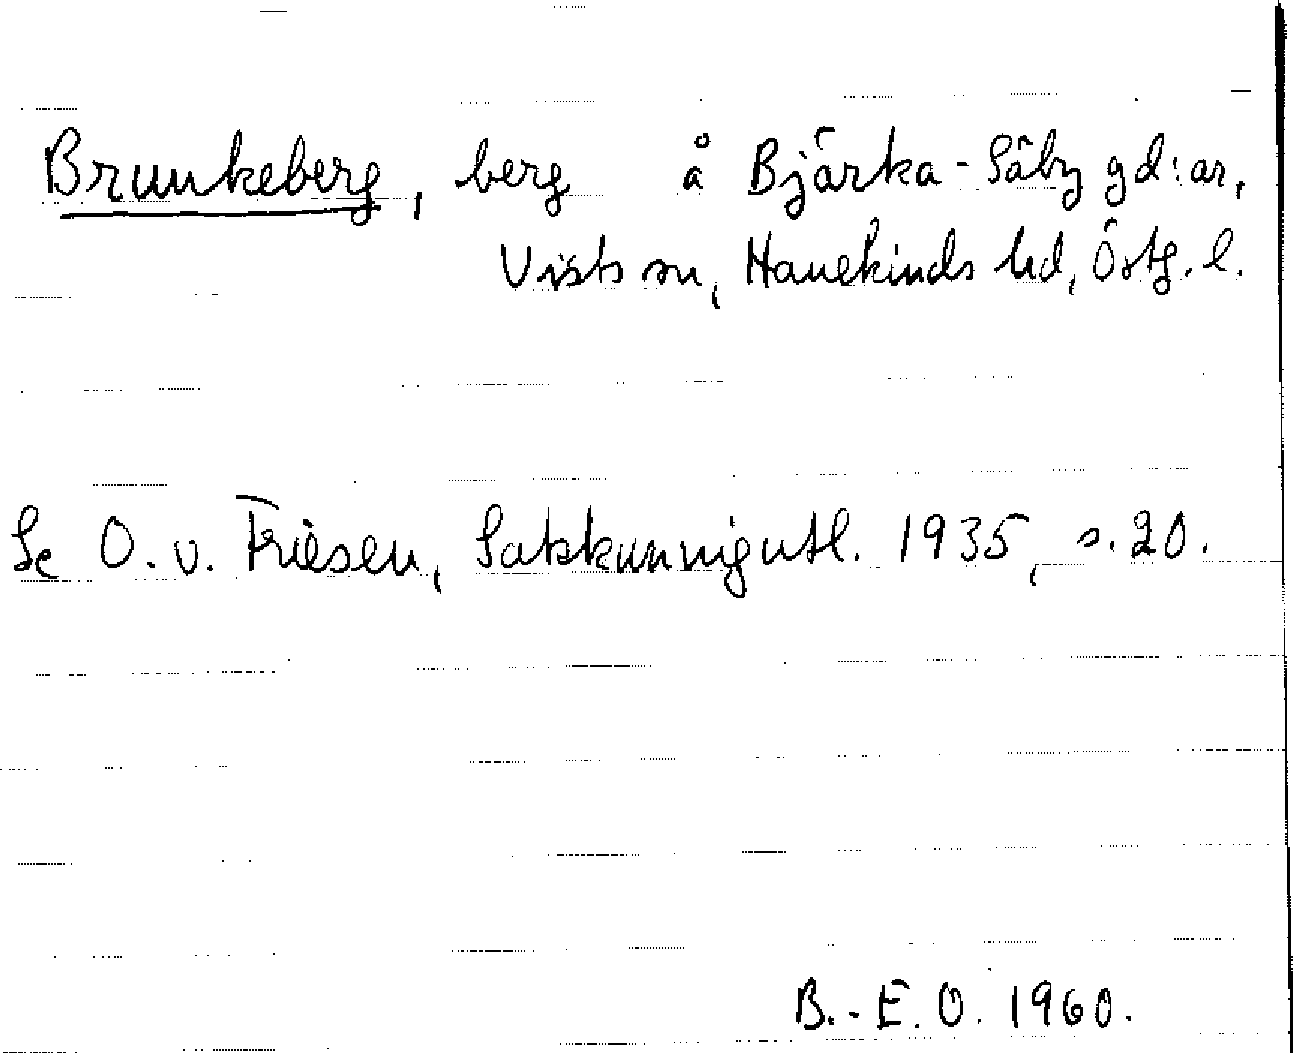 Brunkeberg, berg å Bjärka-Säby gd:ar,
Vists sn, Hanekinds hd, Östg. l.
Se O. v. Friesen, Sakkunnigutl. 1935, s. 20.
B.-E. O. 1960.